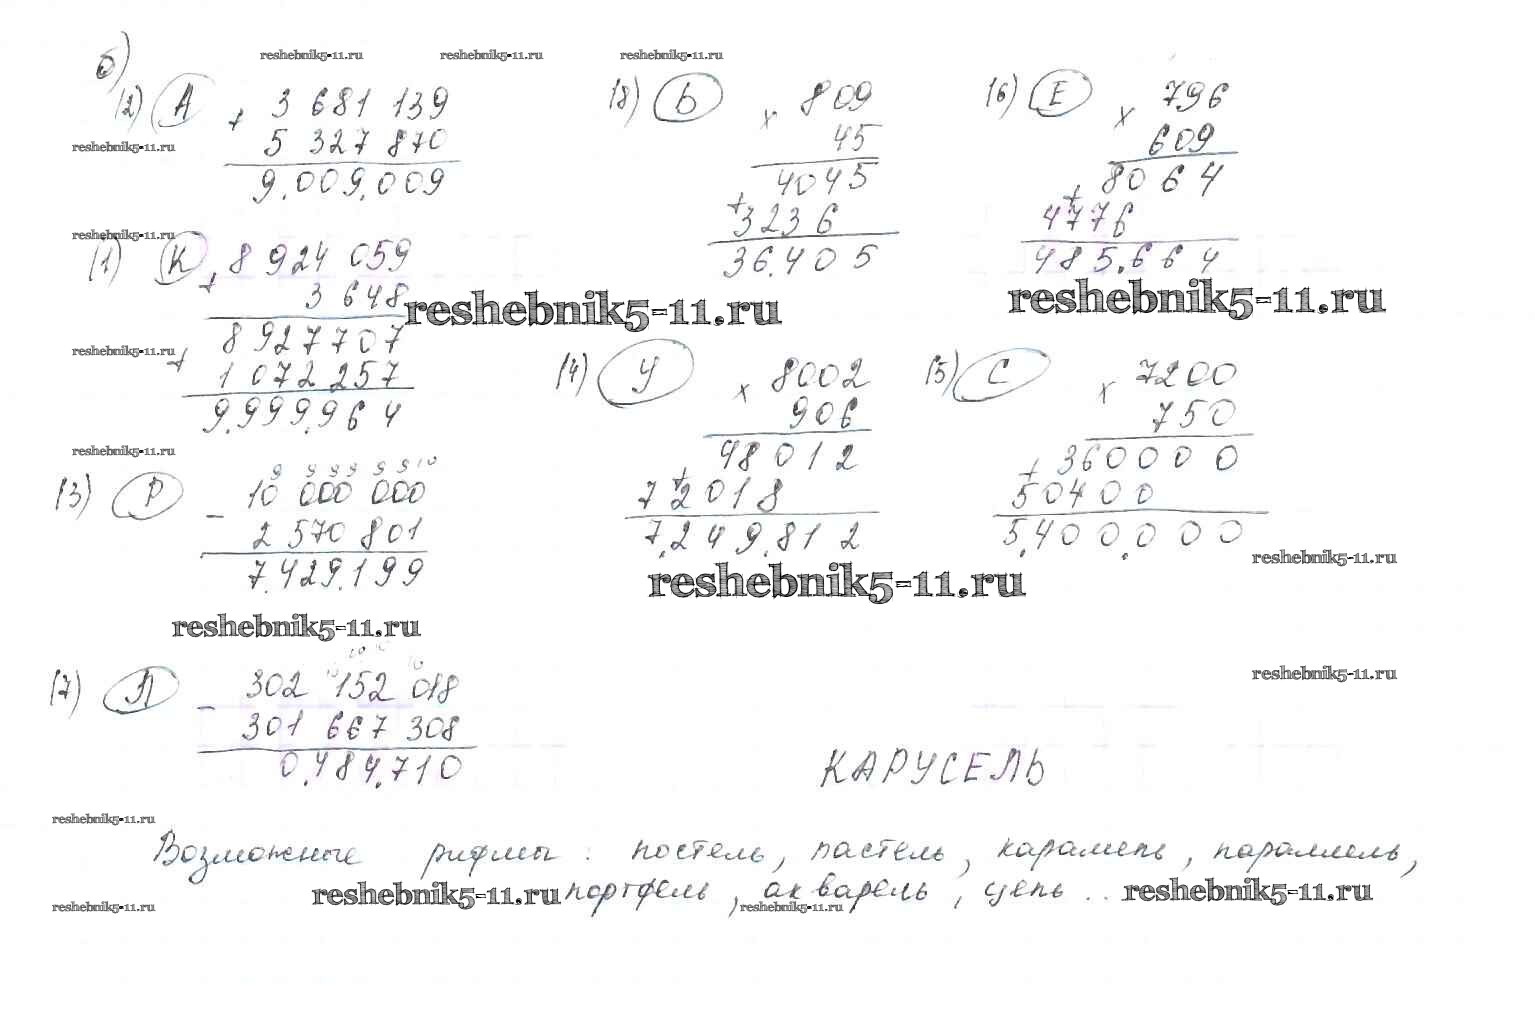 б)
reshebnik5-11.ru reshebnik5-11.ru reshebnik5-11.ru
(2) А + 3 681 139
5 327 870
9.009.009
(8) Ь × 809
45
4045
+ 3236
36.405
(6) Е × 796
609
8064
+ 4776
485.664
reshebnik5-11.ru
reshebnik5-11.ru
(1) К + 8 924 059
3 648
8 927 707
+ 1 072 257
9.999.964
reshebnik5-11.ru reshebnik5-11.ru
reshebnik5-11.ru
(4) У × 8002
906
48012
+ 72018
7.249.812
(5) С × 7200
750
360000
+ 50400
5.400.000
reshebnik5-11.ru
9 9 9 9 9 9 10
(3) Р - 10 000 000
2 570 801
7.429.199
reshebnik5-11.ru
reshebnik5-11.ru
reshebnik5-11.ru
(7) Л - 302 152 018
301 667 308
0.484.710
reshebnik5-11.ru
КАРУСЕЛЬ
reshebnik5-11.ru
Возможные рифмы: постель, пастель, карамель, параллель,
reshebnik5-11.ru портфель, акварель, цепь .. reshebnik5-11.ru
reshebnik5-11.ru reshebnik5-11.ru